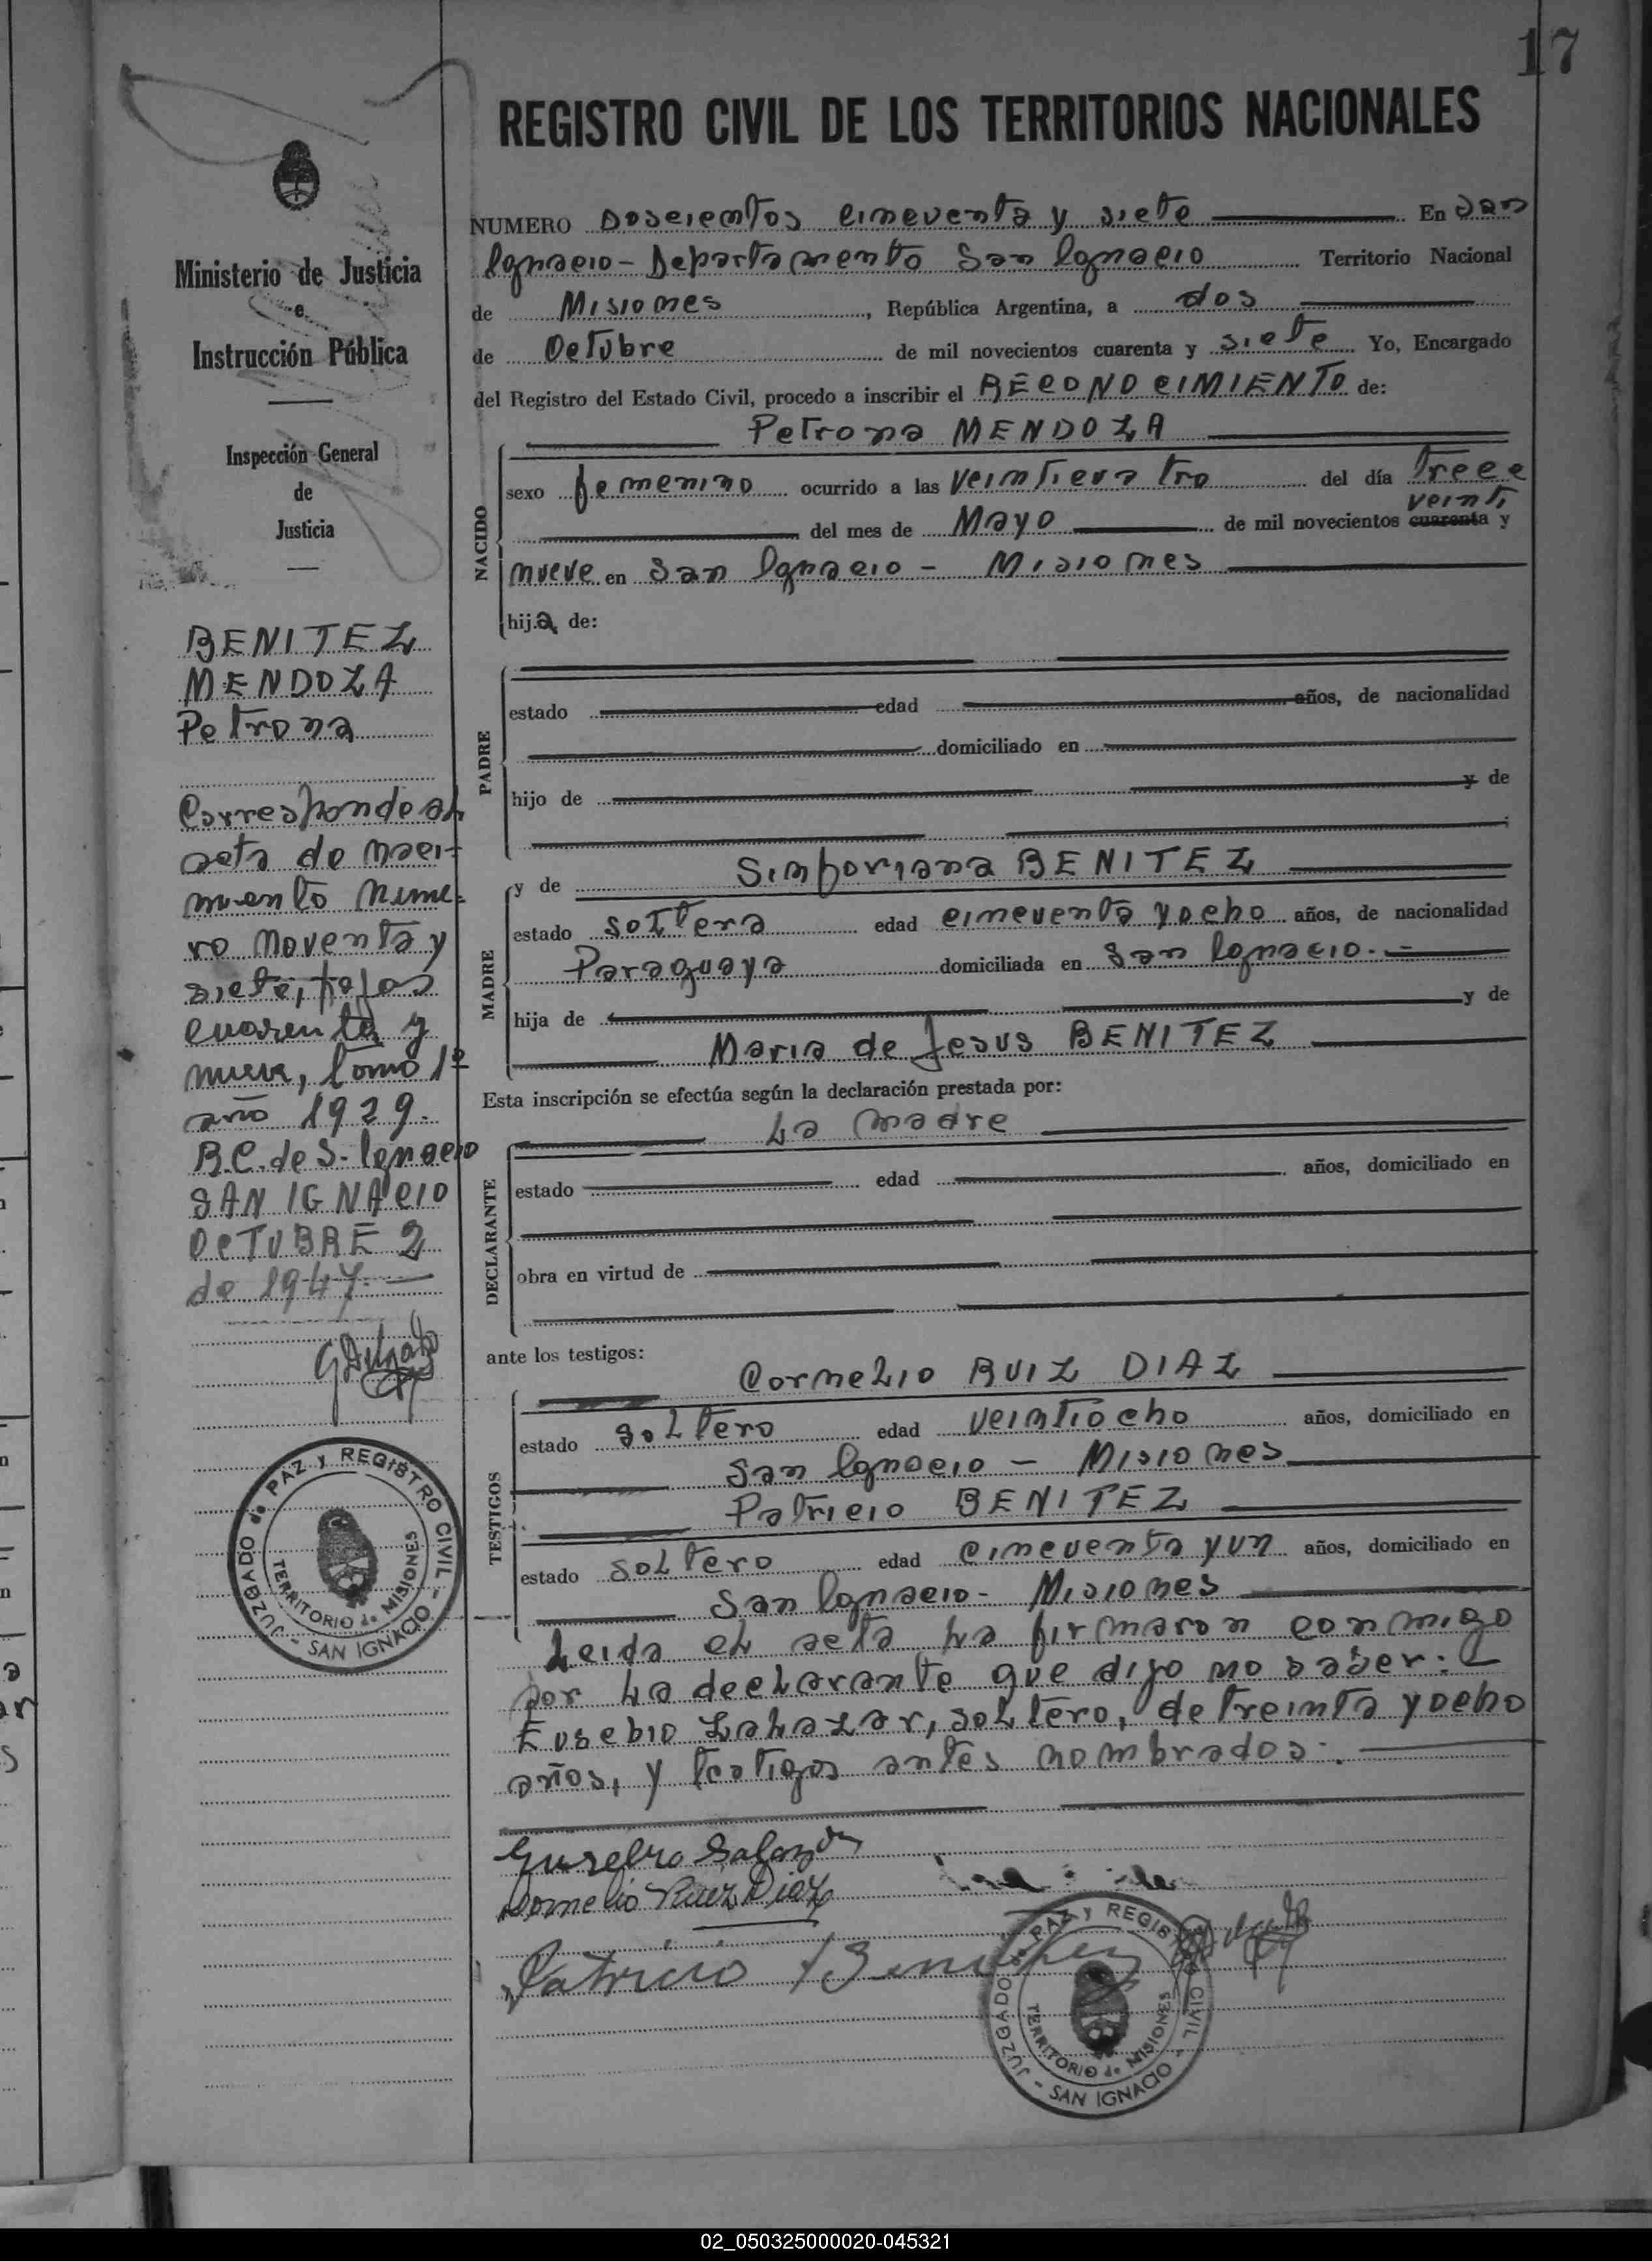 17
REGISTRO CIVIL DE LOS TERRITORIOS NACIONALES
Ministerio de Justicia
e
Instrucción Pública
Inspección General
de
Justicia
BENITEZ
MENDOZA
Petrona
Corresponde al
acta de naci-
miento nume-
ro noventa y
siete, fojas
cuarenta y
nueve, tomo 1º
año 1929.
R.C. de S. Ignacio
SAN IGNACIO
OCTUBRE 2
de 1947.
JUZGADO de PAZ y REGISTRO CIVIL - SAN IGNACIO -
TERRITORIO de MISIONES
NUMERO Doscientos cincuenta y siete En San
Ignacio - Departamento San Ignacio Territorio Nacional
de Misiones, República Argentina, a dos
de Octubre de mil novecientos cuarenta y siete Yo, Encargado
del Registro del Estado Civil, procedo a inscribir el RECONOCIMIENTO de:
Petrona MENDOZA
NACIDO
sexo femenino ocurrido a las veinticuatro del día trece
veinti
del mes de Mayo de mil novecientos cuarenta y
nueve en San Ignacio - Misiones
hija de:
PADRE
estado edad años, de nacionalidad
domiciliado en
hijo de y de
MADRE
y de Sinforiana BENITEZ
estado soltera edad cincuenta y ocho años, de nacionalidad
Paraguaya domiciliada en San Ignacio.-
hija de y de
Maria de Jesus BENITEZ
Esta inscripción se efectúa según la declaración prestada por:
La madre
DECLARANTE
estado edad años, domiciliado en
obra en virtud de
ante los testigos:
TESTIGOS
Cornelio RUIZ DIAZ
estado soltero edad veintiocho años, domiciliado en
San Ignacio - Misiones
Patricio BENITEZ
estado soltero edad cincuenta y un años, domiciliado en
San Ignacio - Misiones
Leida el acta la firmaron conmigo
por la declarante que dijo no saber:
Eusebio Zalazar, soltero, de treinta y ocho
años, y testigos antes nombrados.
Eusebio Salazar
Cornelio Ruiz Diaz
Patricio Benitez
JUZGADO de PAZ y REGISTRO CIVIL - SAN IGNACIO -
TERRITORIO de MISIONES
02_050325000020-045321